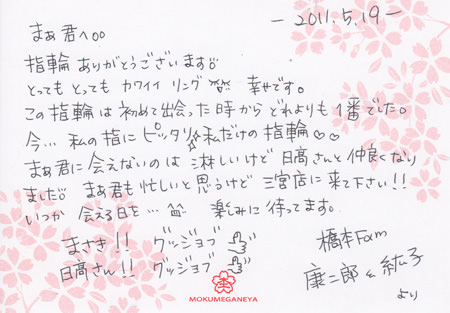 －2011.5.19－
まぁ君へ。。
指輪ありがとうございます!!
とってもとってもカワイイリング 幸せです。
この指輪は初めて出会った時からどれよりも1番でした。
今… 私の指にピッタリ☆私だけの指輪♡♡
まぁ君に会えないのは淋しいけど日高さんと仲良くなり
ました!! まぁ君も忙しいと思うけど三宮店に来て下さい!!
いつか会える日を… 楽しみに待ってます。
まさき!! グッジョブ
日高さん!! グッジョブ
橋本Fam
康二郎&紘子
より
MOKUMEGANEYA